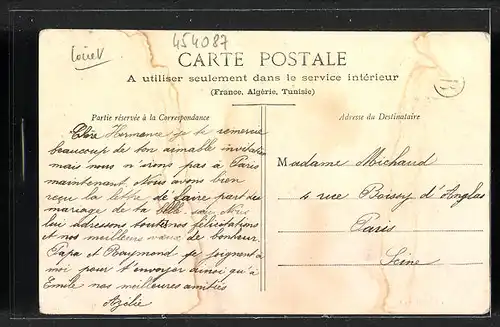 Loiret
454087
CARTE POSTALE
A utiliser seulement dans le service intérieur
(France, Algérie, Tunisie)
Partie réservée à la Correspondance
Adresse du Destinataire
Chère Hermance je te remercie
beaucoup de ton aimable invitation
mais nous n'irons pas à Paris
maintenant. Nous avons bien
reçu la lettre de faire part du
mariage de ta belle
lui adressons toutes nos félicitations
et nos meilleurs vœux de bonheur.
Papa et Raymond se joignent à
moi pour t'envoyer ainsi qu'à
Emile nos meilleures amitiés
Azélie
Madame Michaud
4 rue Boissy d'Anglas
Paris
Seine